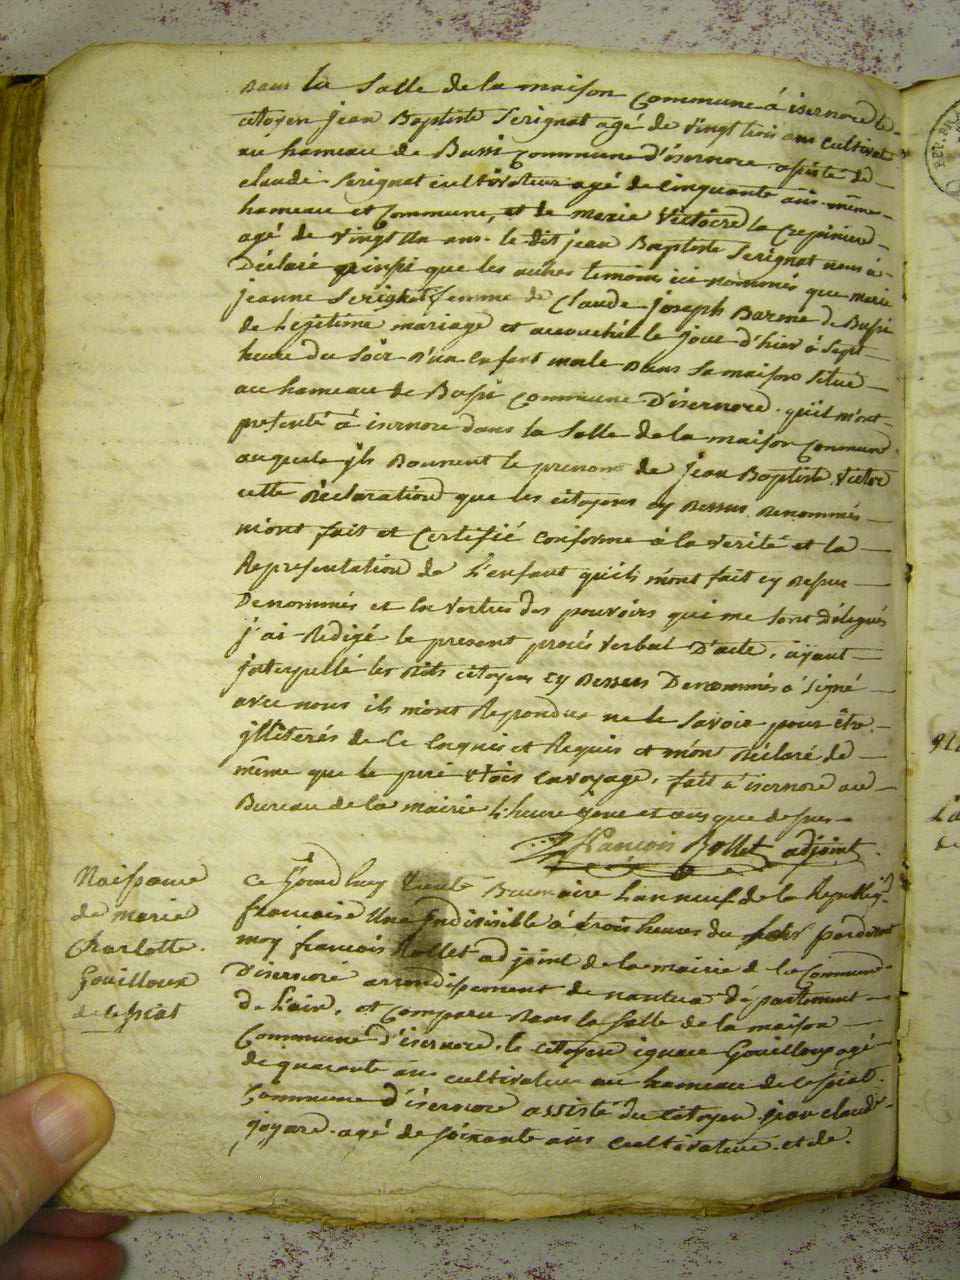 Dans la Salle de la maison Commune á isernore le
citoyen jean Baptiste Serignat agé de vingt trois ans cultivat
au hameau de Bussi Commune d'isernore assisté de
claude Serignat cultivateur agé de Cinquante ans même
hameau et Commune, et de marie Victoire la Crepiniere
agé de vingt un ans. le dit jean Baptiste Serignat nous á
Déclaré que les autres temoins ici nommés que marie
jeanne Serignat femme de Claude joseph Barme de Bussi
de Légitime mariage et accouchée le jour d'hier á Sept
heure du Soir d'un Enfant male dans sa maison Situé
au hameau de Bussi Commune D'isernore. qu'il m'ont
presenté á isernore dans la Salle de la maison Commune
auquele ils Donnent le prenom de jean Baptiste Victor
cette Déclaration que les citoyens cy Dessus Denommés
m'ont fait et Certifié Conforme á la verité et la
Representation de L'enfant qu'ils m'ont fait cy Dessus
Denommés et En Vertus des pouvoirs qui me sont délegués
j'ai Redigé le present procés Verbal D'acte, ayant
jnterpellé les dits citoyens cy Dessus Denommés á Signé
avec nous ils m'ont Repondus ne le Savoir pour être
jlliterés de Ce Enquis et Requis et m'on Déclaré de
même que le pere etois En voyage, fait á isernore au
Bureau de la mairie L'heure jour et ans que dessus
françois Rollet adjoint
Naissance
de marie
Charlotte
Gouilloux
de cessiat
Ce Jourd'huy trente Brumaire L'an neuf de la Republiq
francaise Une Indivisible á trois heures du soir pardevant
moy francois Rollet adjoint de la mairie de la Commune
D'isernore arrondissement de nantua departement
de L'ain, et Comparu dans la salle de la maison
Commune d'isernore, le citoyen ignace Gouilloux agé
de quarante ans cultivateur au hameau de cessiat
Commune d'isernore assisté du Citoyen jean claude
joyard agé de soixante ans cultivateur et de